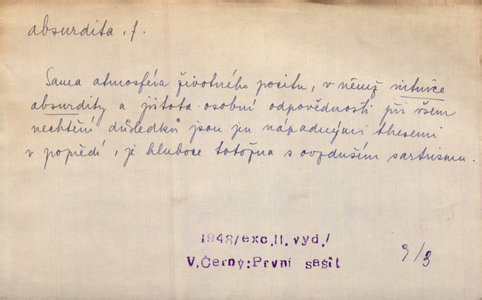 absurdita, f.
Sama atmosféra životného pocitu, v němž intuice
absurdity a jistota osobní odpovědnosti při všem
nechtění důsledků jsou pu nápadnými thesemi
v popředí, je hluboce totožna s ovzduším sartrismu.
1948/exc.II.vyd./
V.Černý:První sešit
9/3